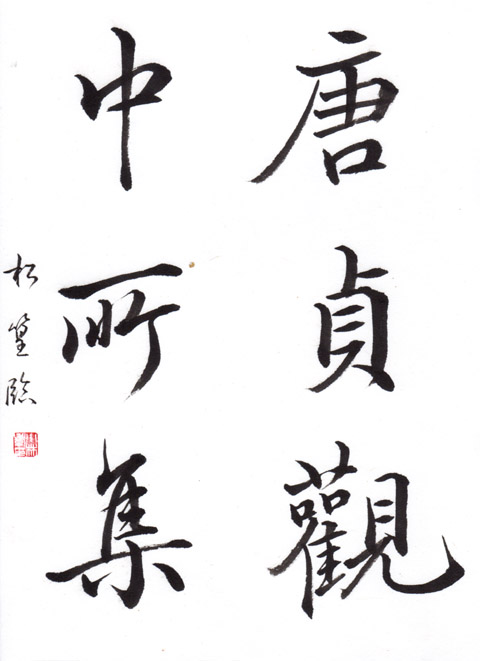 唐貞觀
中所集
松篁臨